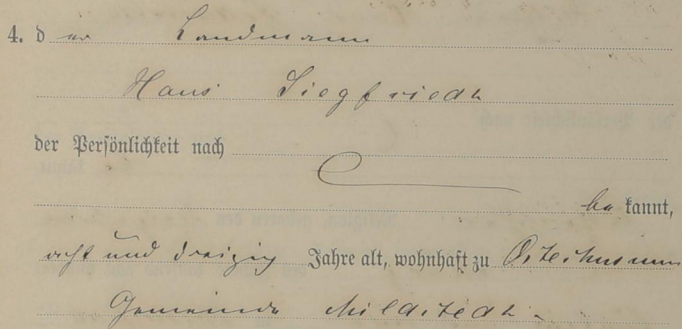 4. d er Landmann
Hans Siegfriedt
der Persönlichkeit nach
be kannt,
acht und dreizig Jahre alt, wohnhaft zu Osterhusum
Gemeinde Mildstedt.